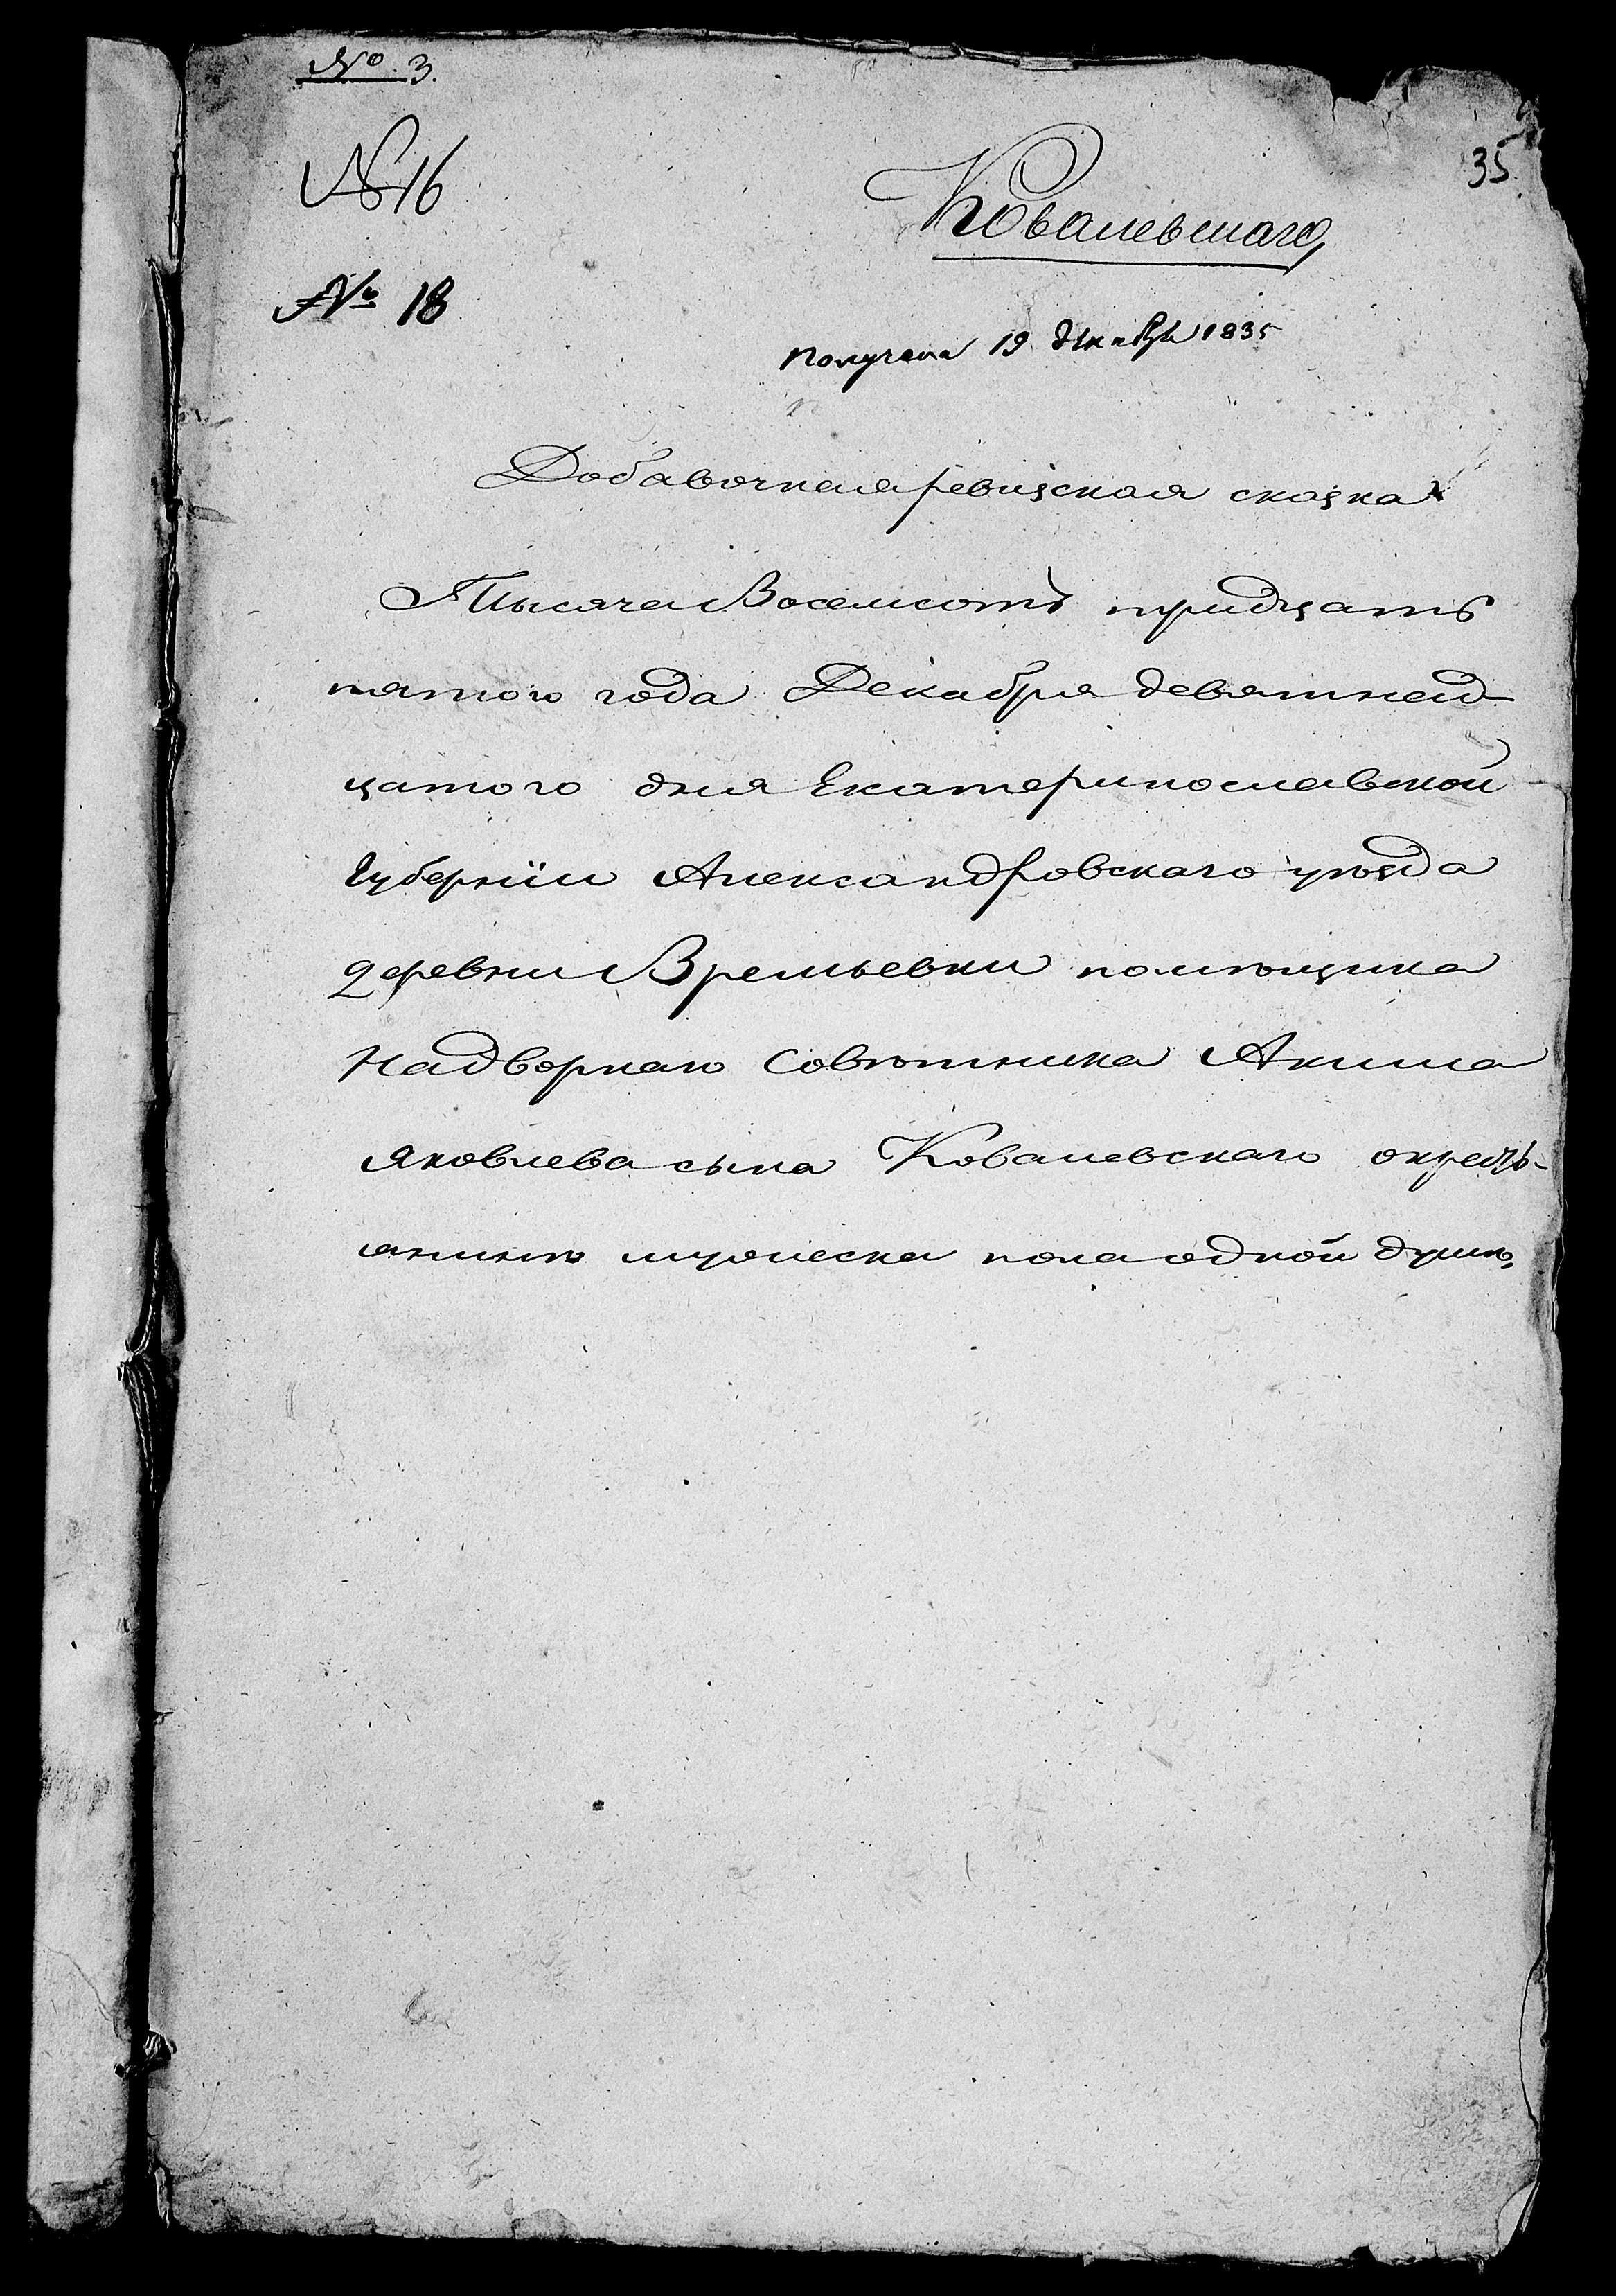 № 3.
№ 16
35
Ковалевскаго
№ 18
Получена 19 декабря 1835
Добавочная ревизская сказка
Тысяча Восемсотъ тридцать
пятого года Декабря девятнад-
цатого дня Екатеринославской
Губернiи Александровскаго уѣзда
деревни Времьевки помѣщика
Надворнаго Совѣтника Акима
Яковлева сына Ковалевскаго окресть-
янинѣ мужеска пола одной душѣ,